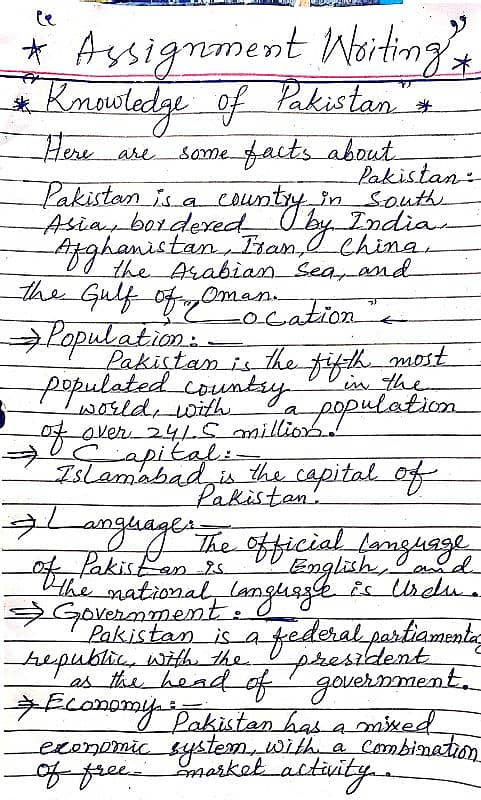 " * Assignment Writing " *
* "Knowledge of Pakistan" *
Here are some facts about
Pakistan:
Pakistan is a country in South
Asia, bordered by India,
Afghanistan, Iran, China,
the Arabian Sea, and
the Gulf of Oman.
" Location " ←
⇒ Population:-
Pakistan is the fifth most
populated country in the
world, with a population
of over 241.5 million.
⇒ Capital:-
Islamabad is the capital of
Pakistan.
⇒ Language:-
The official language
of Pakistan is English, and
the national language is Urdu.
⇒ Government:-
Pakistan is a federal partiamenta
republic, with the president
as the head of government.
⇒ Economy:-
Pakistan has a mixed
economic system, with a combination
of free- market activity.